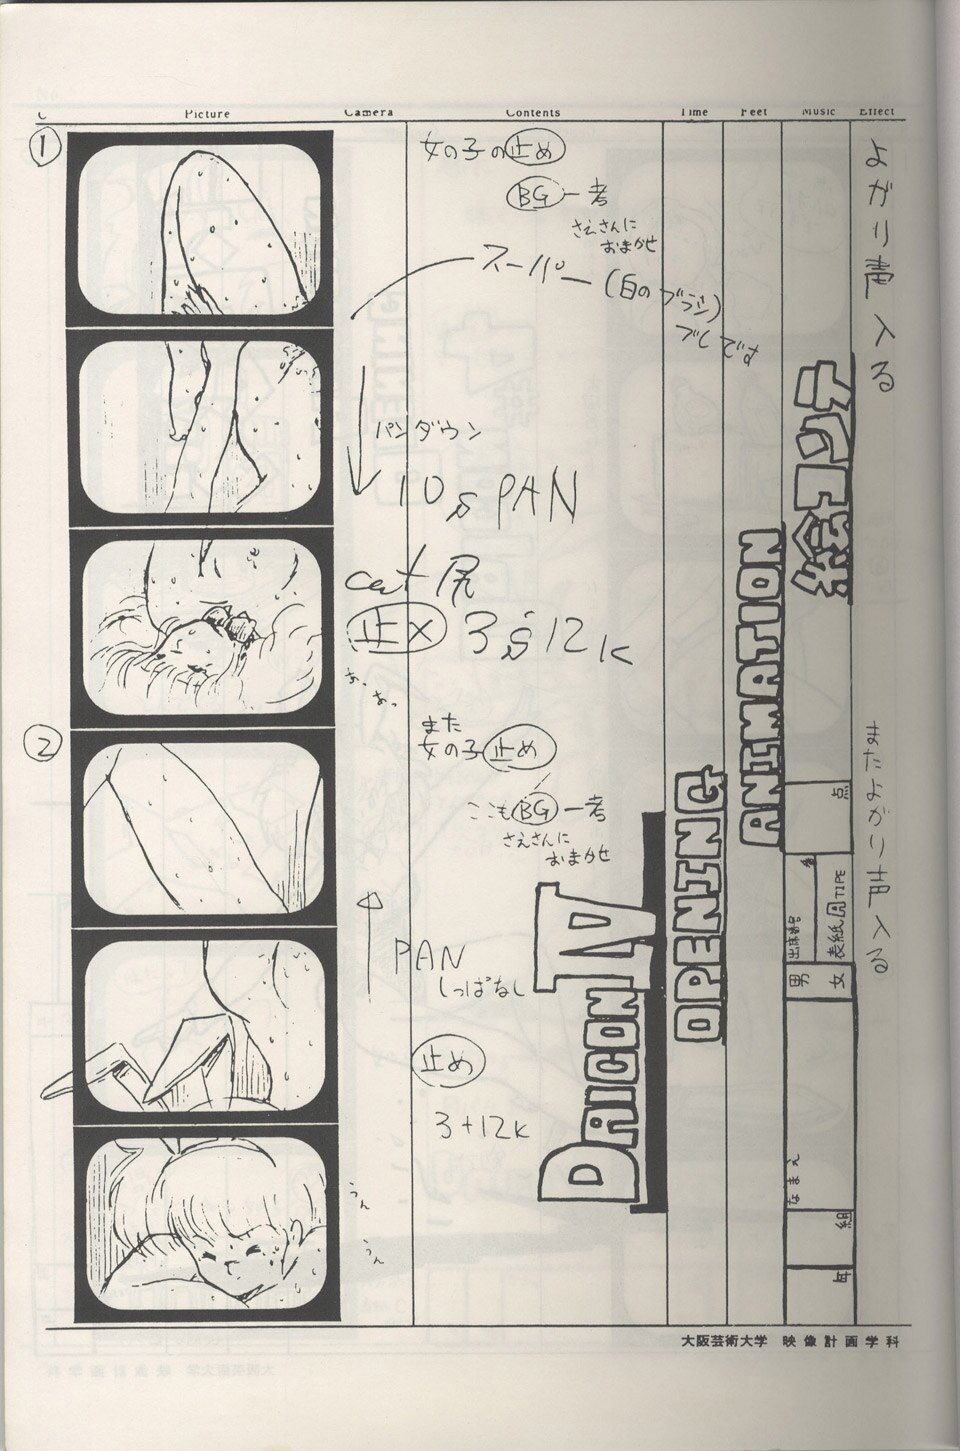 C Picture Camera Contents Time Feet Music Effect
①
女の子の止め
BG一考
さえさんに
おまかせ
スーパー(白のブラシ)
ブレです
パンダウン
10s PAN
cut 尻
止メ 3s12k
あっ
あっ
②
また
女の子止め
ここもBG一考
さえさんに
おまかせ
PAN
しっぽなし
止め
3+12k
うん
うん
DAICON IV
OPENING
ANIMATION
絵コンテ
点
出席番号
表紙A TIPE
男
女
なまえ
組
年
よがり声入る
またよがり声入る
大阪芸術大学 映像計画学科